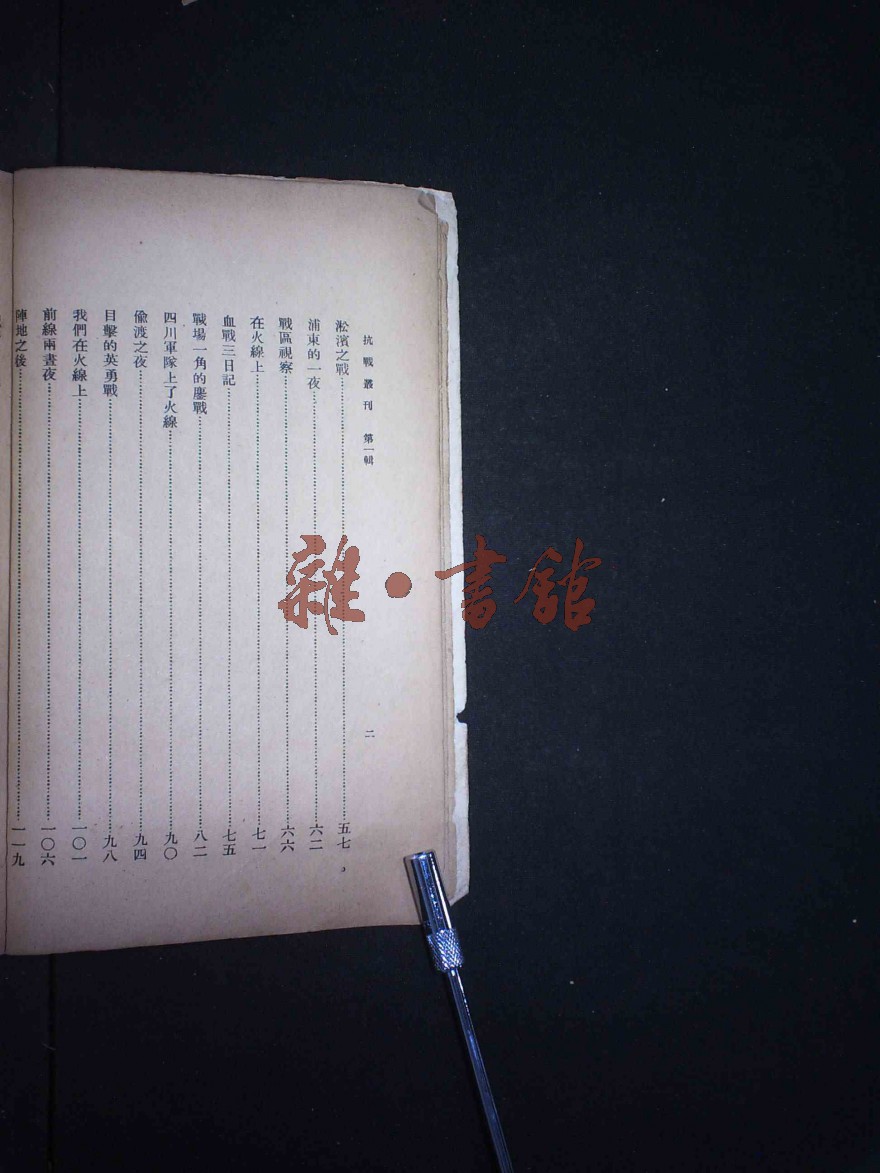 抗戰叢刊 第一輯
二
淞濱之戰……五七
浦東的一夜……六二
戰區視察……六六
在火線上……七一
血戰三日記……七五
戰場一角的鏖戰……八二
四川軍隊上了火線……九〇
偸渡之夜……九四
目擊的英勇戰……九八
我們在火線上……一〇一
前線兩晝夜……一〇六
陣地之後……一一九
雜·書館